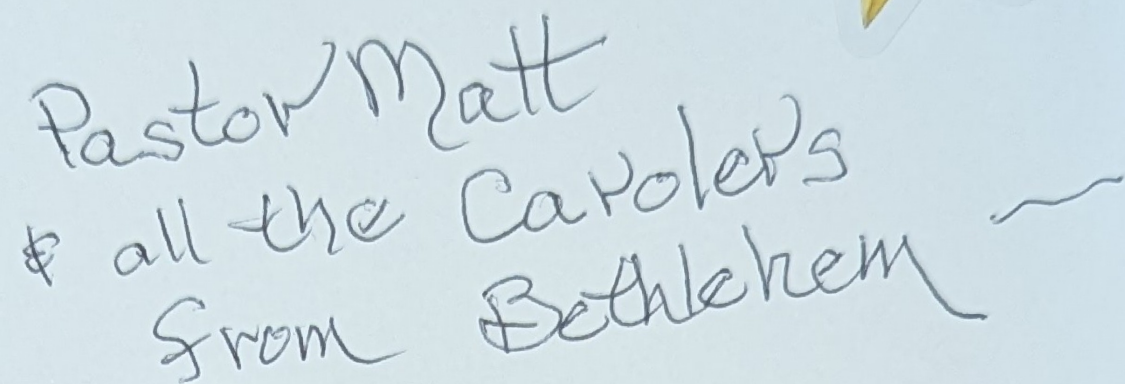 Pastor Matt
& all the Carolers
from Bethlehem ~